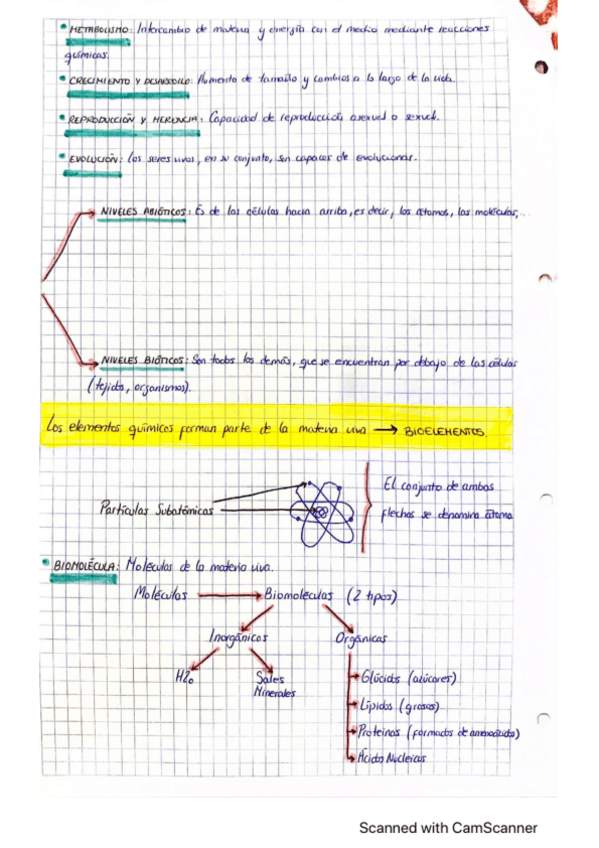 • METABOLISMO: Intercambio de materia y energía con el medio mediante reacciones
químicas.
• CRECIMIENTO Y DESARROLLO: Aumento de tamaño y cambios a lo largo de la vida.
• REPRODUCCIÓN Y HERENCIA: Capacidad de reproducción asexual o sexual.
• EVOLUCIÓN: Los seres vivos, en su conjunto, son capaces de evolucionar.
NIVELES ABIÓTICOS: Es de las células hacia arriba, es decir, los átomos, las moléculas,...
NIVELES BIÓTICOS: Son todos los demás, que se encuentran por debajo de las células
(tejido, organismos).
Los elementos químicos forman parte de la materia viva → BIOELEMENTOS.
El conjunto de ambas
Partículas Subatómicas
flechas se denomina átomo
• BIOMOLÉCULA: Moléculas de la materia viva.
Moléculas → Biomoléculas (2 tipos)
Inorgánicas Orgánicas
H2O Sales Minerales
Glúcidos (azúcares)
Lípidos (grasas)
Proteínas (formados de aminoácido)
Ácido Nucleicos
Scanned with CamScanner